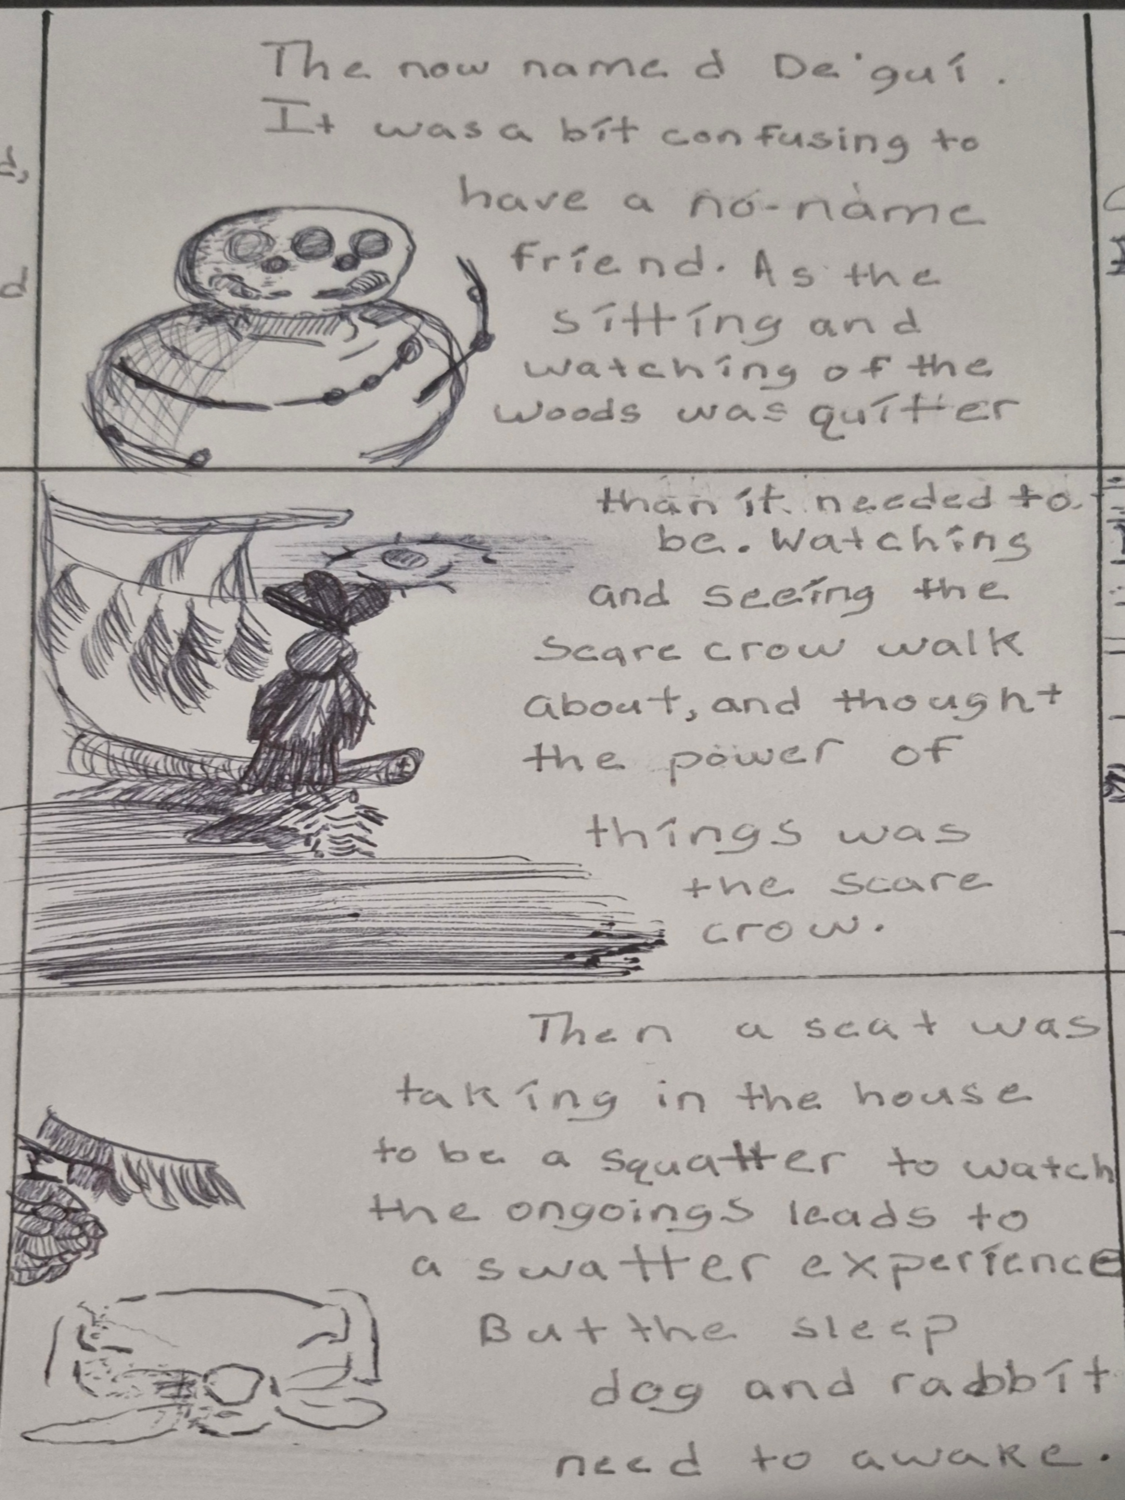 The now named De'gui.
It was a bit confusing to
have a no-name
friend. As the
sitting and
watching of the
woods was quitter
than it needed to
be. Watching
and seeing the
scare crow walk
about, and thought
the power of
things was
the scare
crow.
Then a seat was
taking in the house
to be a squatter to watch
the ongoings leads to
a swatter experience
But the sleep
dog and rabbit
need to awake.